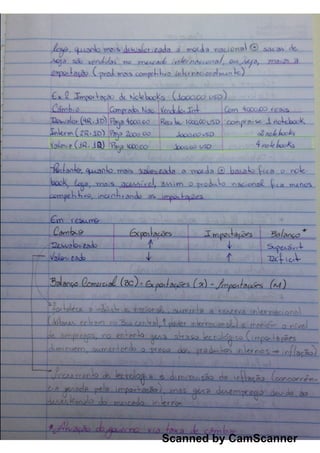 Logo, quanto mais desvalorizada a moeda nacional ⊕ sacas de
soja são vendidas no mercado internacional, ou seja, maior a
exportação (prod. mais competitivo internacionalmente)
Ex 2 Importação de Notebooks (1000,00 USD)
Câmbio Comprador Nac Vendedor Int. Com 4000,00 reais
Desvalor (4R:1D) Paga 4000,00 Recebe 1000,00 USD compra-se 1 notebook
Interm (2R:1D) Paga 2000,00 1000,00 USD 2 notebooks
Valoriz (1R:1D) Paga 1000,00 1000,00 USD 4 notebooks
Portanto, quanto mais valorizada a moeda ⊕ barato fica o note
book, logo, mais acessível, assim o produto nacional fica menos
competitivo, incentivando as importações
Em resumo
Câmbio Exportações Importações Balança*
Desvalorizado ↑ ↓ Superávit
Valorizado ↓ ↑ Déficit
Balança Comercial (BC) = Exportações (X) - Importações (M)
Fortalece a indústria nacional, aumenta a reserva internacional
(dólares entram no Bco central, ↑ poder internacional) e mantém o nível
de empregos, no entanto gera atraso tecnológico (importações
diminuem, aumentando o preço dos produtos internos → inflação)
Incremento de tecnologia e diminuição da inflação (concorrên-
cia gerada pela importação), mas gera desemprego devido ao
do mercado interno
* Atuação do governo via taxa de câmbio
Scanned by CamScanner